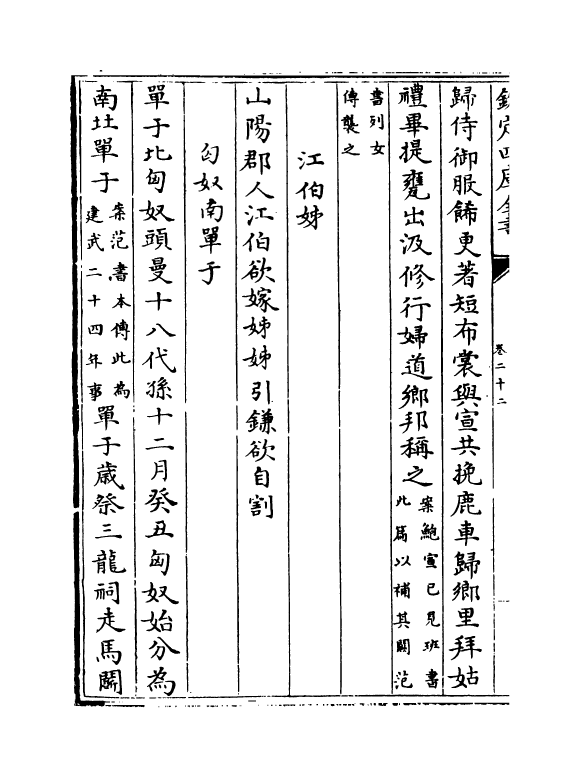 欽定四庫全書
卷二十二
歸侍御服飾更著短布裳與宣共挽鹿車歸鄉里拜姑
禮畢提甕出汲修行婦道鄉邦稱之案鮑宣已見班書此篇以補其闕范
書列女傳襲之
江伯姊
山陽郡人江伯欲嫁姊姊引鎌欲自割
匈奴南單于
單于比匈奴頭曼十八代孫十二月癸丑匈奴始分為
南北單于案范書本傳此為建武二十四年事單于歲祭三龍祠走馬鬬